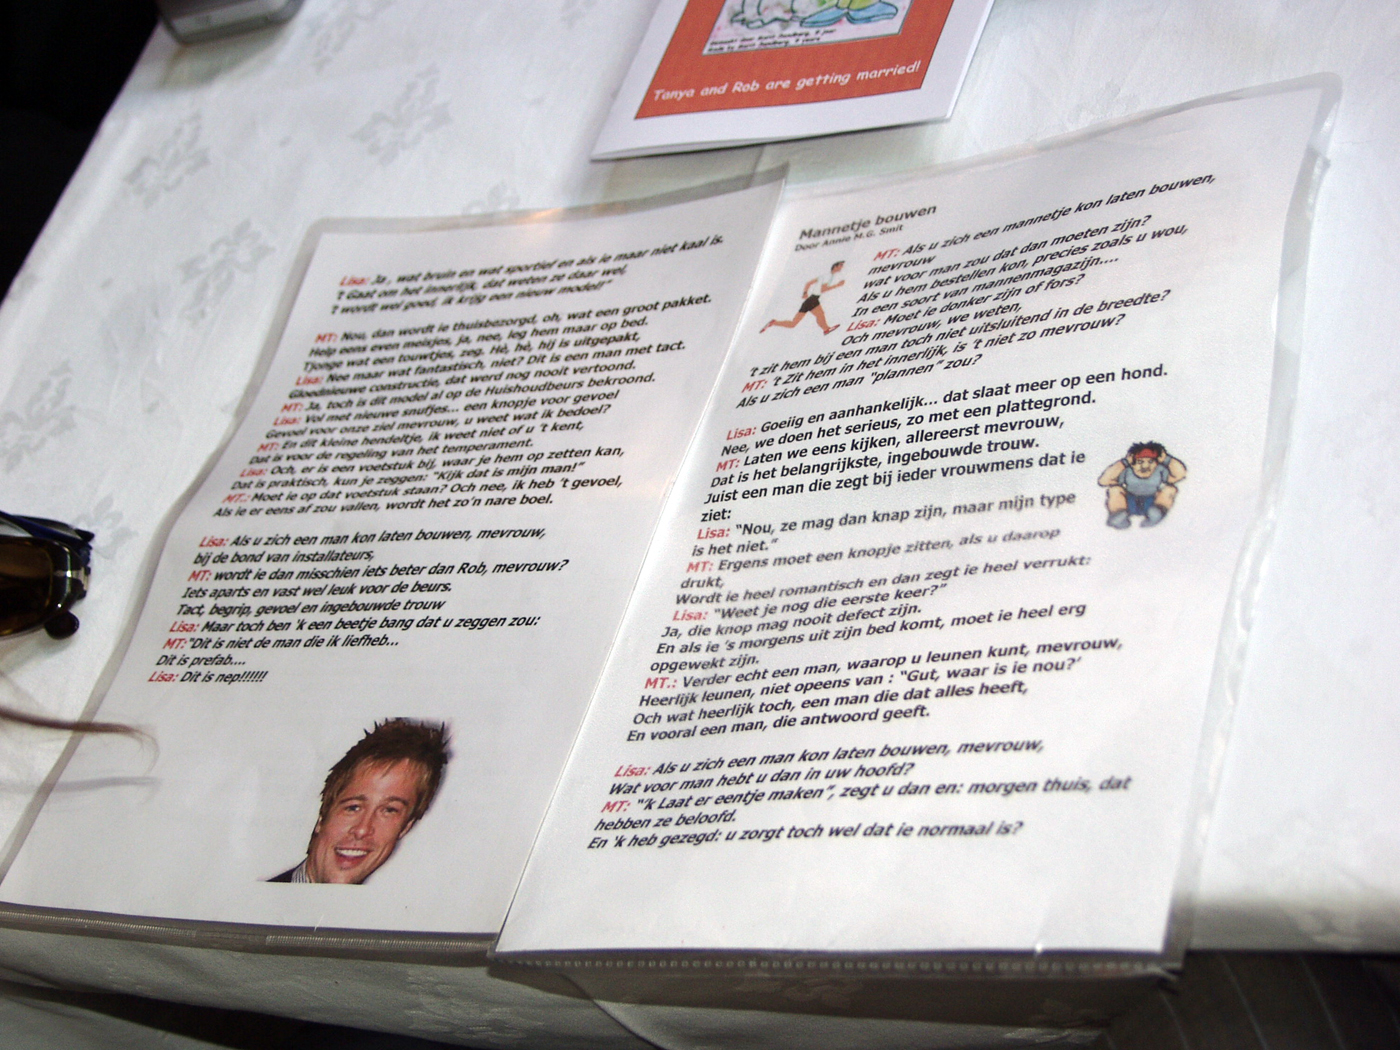 Gemaakt door Marit Sandberg, 9 jaar
Made by Marit Sandberg, 9 years
Tanya and Rob are getting married!
Lisa: Ja, wat bruin en wat sportief en als ie maar niet kaal is.
't Gaat om het innerlijk, dat weten ze daar wel,
't wordt wel goed, ik krijg een nieuw model!"
MT: Nou, dan wordt ie thuisbezorgd, oh, wat een groot pakket.
Help eens even meisjes, ja, nee, leg hem maar op bed.
Tjonge wat een touwtjes, zeg. Hè, hè, hij is uitgepakt,
Lisa: Nee maar wat fantastisch, niet? Dit is een man met tact.
Gloednieuwe constructie, dat werd nog nooit vertoond.
MT: Ja, toch is dit model al op de Huishoudbeurs bekroond.
Lisa: Vol met nieuwe snufjes... een knopje voor gevoel
Gevoel voor onze ziel mevrouw, u weet wat ik bedoel?
MT: En dit kleine hendeltje, ik weet niet of u 't kent,
Dat is voor de regeling van het temperament.
Lisa: Och, er is een voetstuk bij, waar je hem op zetten kan,
Dat is praktisch, kun je zeggen: "Kijk dat is mijn man!"
MT.: Moet ie op dat voetstuk staan? Och nee, ik heb 't gevoel,
Als ie er eens af zou vallen, wordt het zo'n nare boel.
Lisa: Als u zich een man kon laten bouwen, mevrouw,
bij de bond van installateurs,
MT: wordt ie dan misschien iets beter dan Rob, mevrouw?
Iets aparts en vast wel leuk voor de beurs.
Tact, begrip, gevoel en ingebouwde trouw
Lisa: Maar toch ben 'k een beetje bang dat u zeggen zou:
MT:"Dit is niet de man die ik liefheb...
Dit is prefab....
Lisa: Dit is nep!!!!!!
Mannetje bouwen
Door Annie M.G. Smit
MT: Als u zich een mannetje kon laten bouwen,
mevrouw
wat voor man zou dat dan moeten zijn?
Als u hem bestellen kon, precies zoals u wou,
In een soort van mannenmagazijn....
Lisa: Moet ie donker zijn of fors?
Och mevrouw, we weten,
't zit hem bij een man toch niet uitsluitend in de breedte?
MT: 't Zit hem in het innerlijk, is 't niet zo mevrouw?
Als u zich een man "plannen" zou?
Lisa: Goeiig en aanhankelijk... dat slaat meer op een hond.
Nee, we doen het serieus, zo met een plattegrond.
MT: Laten we eens kijken, allereerst mevrouw,
Dat is het belangrijkste, ingebouwde trouw.
Juist een man die zegt bij ieder vrouwmens dat ie
ziet:
Lisa: "Nou, ze mag dan knap zijn, maar mijn type
is het niet."
MT: Ergens moet een knopje zitten, als u daarop
drukt,
Wordt ie heel romantisch en dan zegt ie heel verrukt:
Lisa: "Weet je nog die eerste keer?"
Ja, die knop mag nooit defect zijn.
En als ie 's morgens uit zijn bed komt, moet ie heel erg
opgewekt zijn.
MT.: Verder echt een man, waarop u leunen kunt, mevrouw,
Heerlijk leunen, niet opeens van : "Gut, waar is ie nou?'
Och wat heerlijk toch, een man die dat alles heeft,
En vooral een man, die antwoord geeft.
Lisa: Als u zich een man kon laten bouwen, mevrouw,
Wat voor man hebt u dan in uw hoofd?
MT: "'k Laat er eentje maken", zegt u dan en: morgen thuis, dat
hebben ze beloofd.
En 'k heb gezegd: u zorgt toch wel dat ie normaal is?